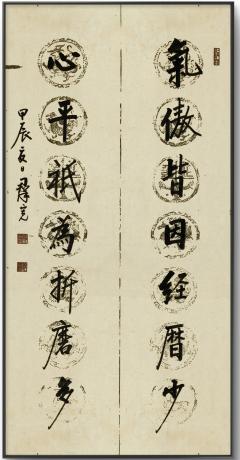 氣傲皆因经曆少
心平祇為折磨多
甲辰夏日